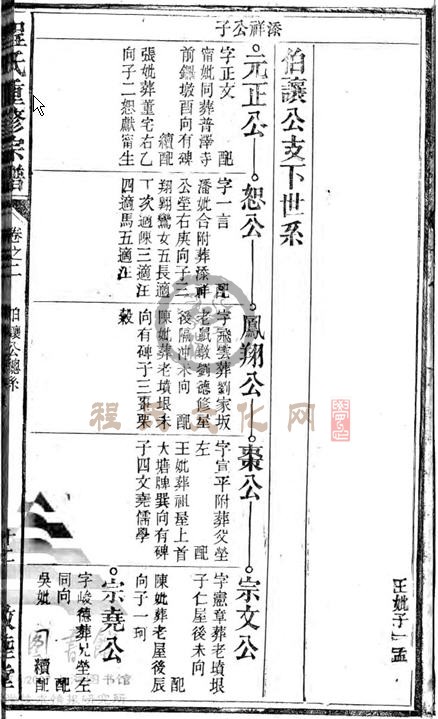 王妣子一孟
伯讓公支下世系
添祥公子
元正公
字正文　配
甯妣同葬普澤寺
前鑼墩酉向有碑
續配
張妣葬董宅右乙
向子二恕獻甯生
恕公
字一言　配
潘妣合附葬添祥
公塋右庚向子三
翔翺鸞女五長適
丁次適陳三適汪
四適馬五適汪
鳳翔公
字飛雲葬劉家坂
老鼠墩劉德修屋
後隔沖未向　配
陳妣葬老墳垠未
向有碑子三棗栗
穀
棗公
字宣平附葬父塋
左　配
王妣葬祖屋上首
大塘牌巽向有碑
子四文堯儒學
宗文公
字憲章葬老墳垠
子仁屋後未向
配
陳妣葬老屋後辰
向子一珂
宗堯公
字峻德葬兄塋左
同向　配
吳妣　續配
程氏重修宗譜
卷之二
伯讓公總系
十二
敦睦堂
程氏文化网
图书馆